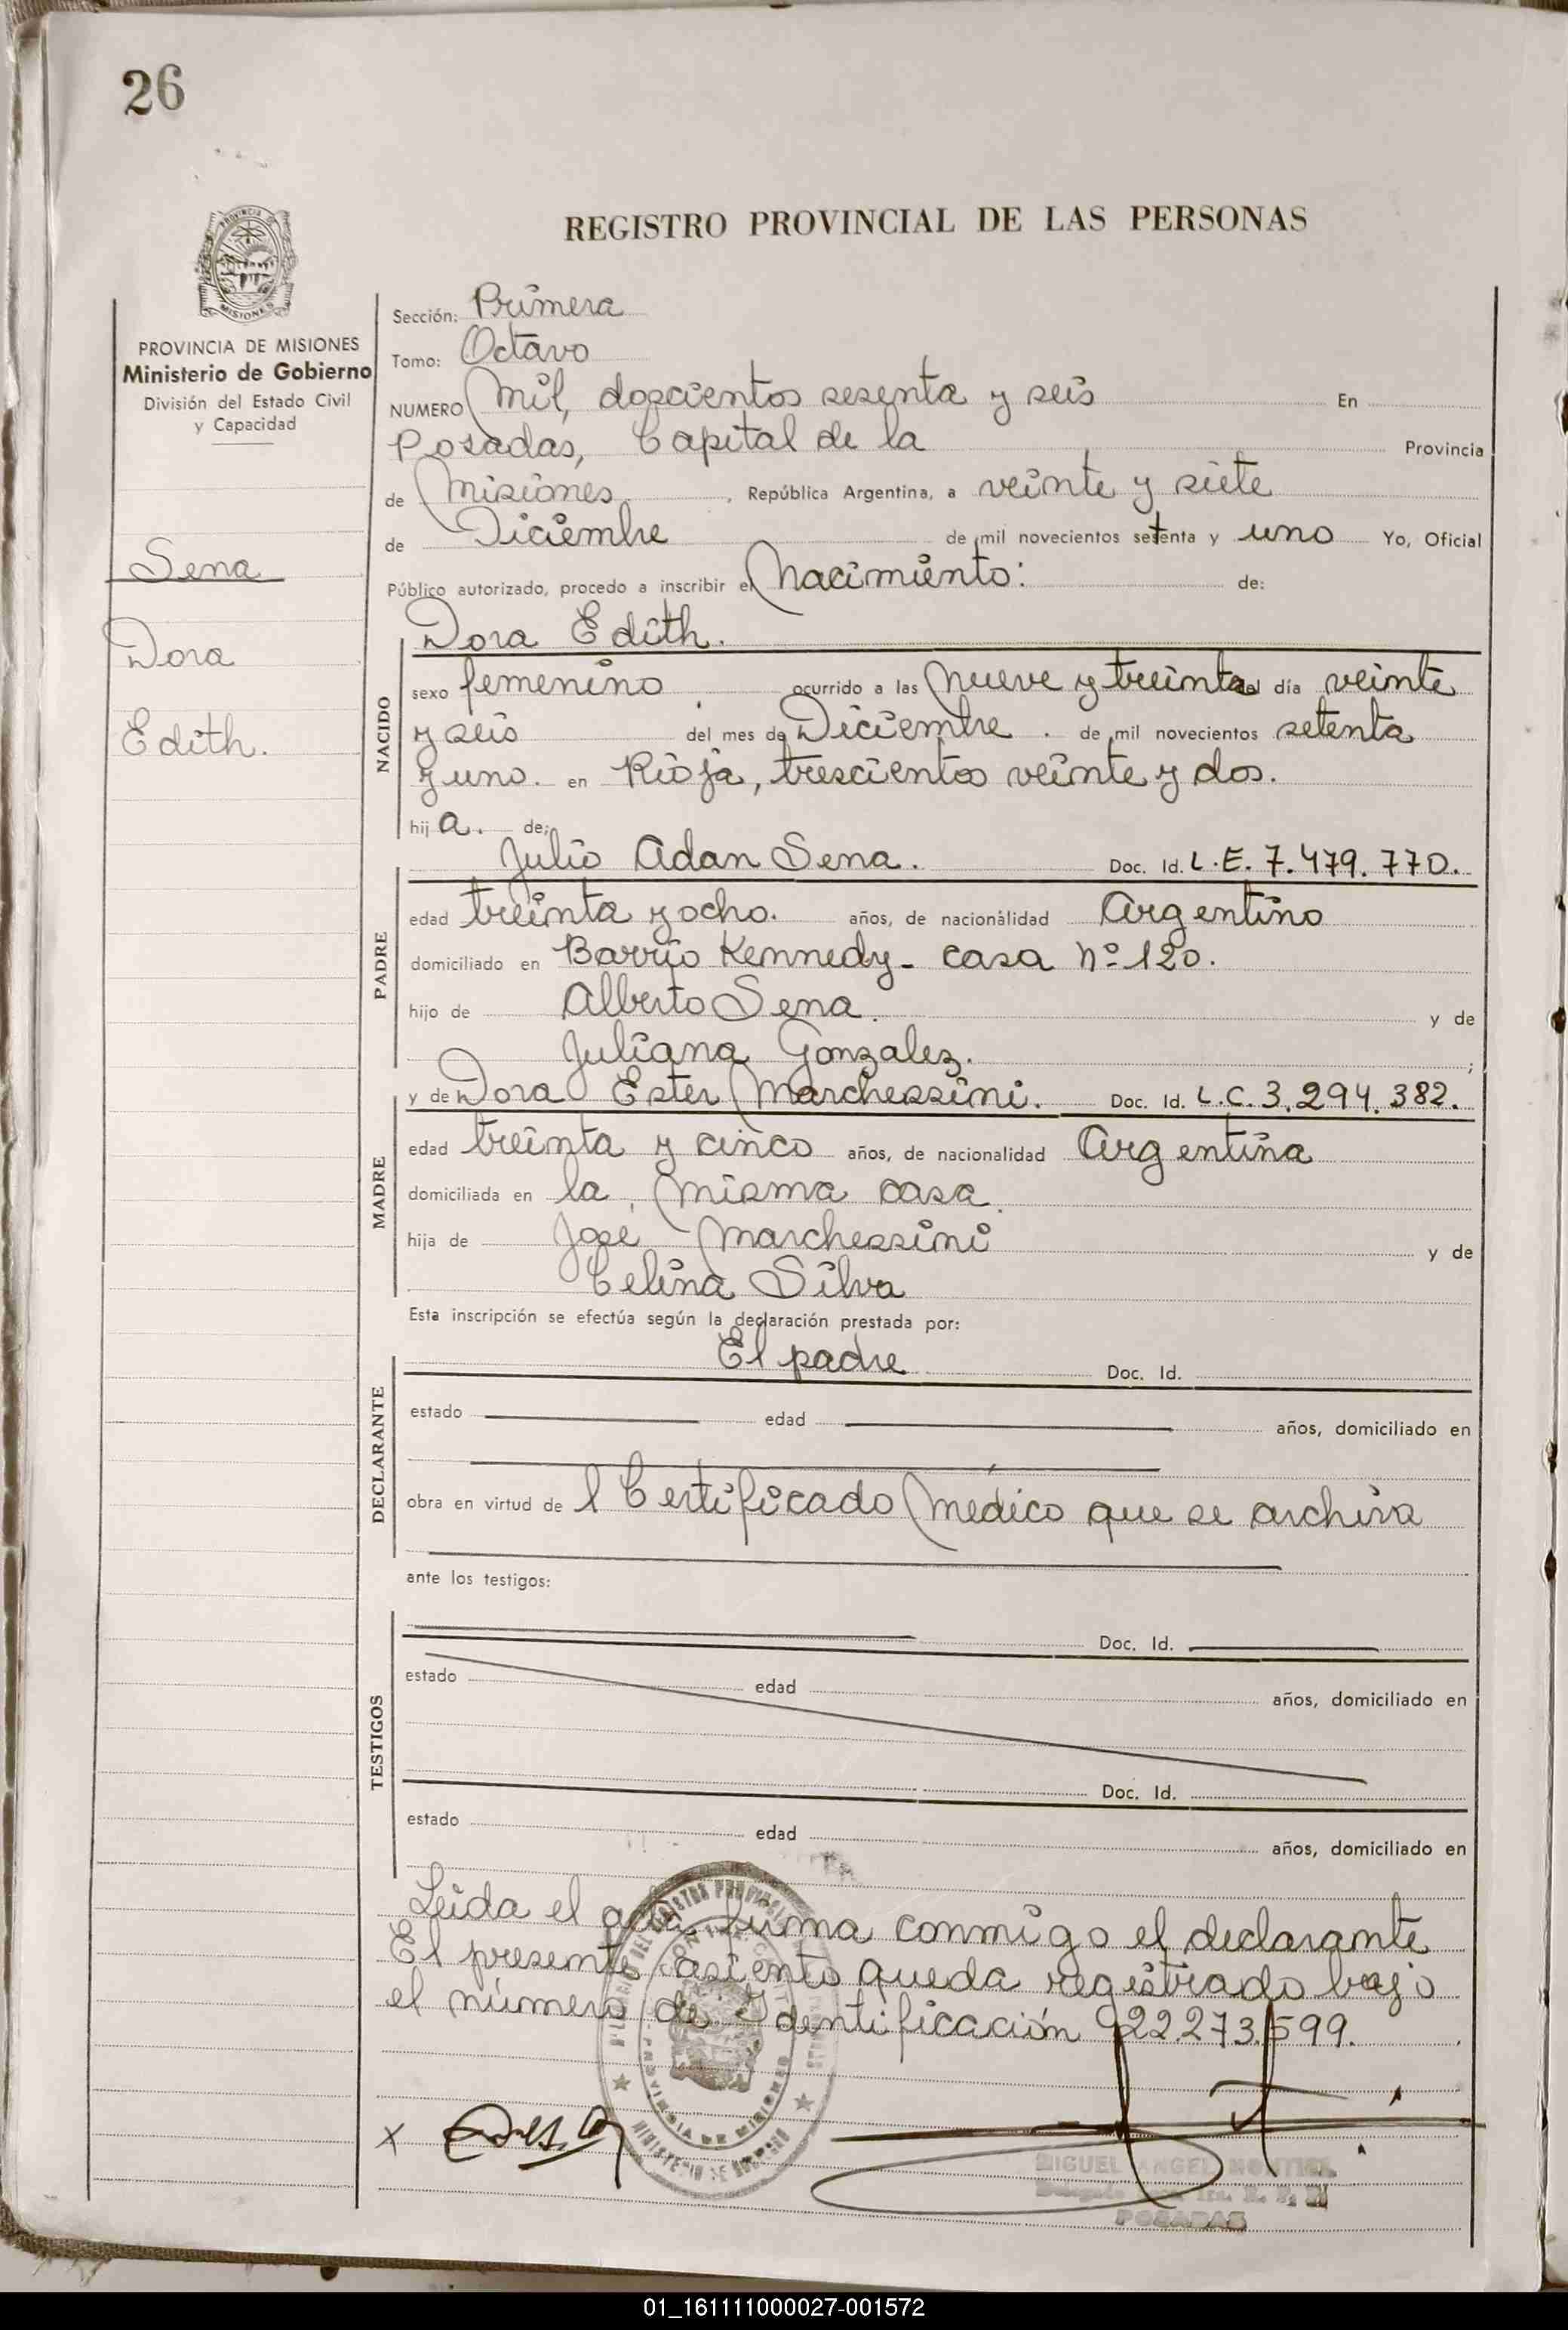 26
REGISTRO PROVINCIAL DE LAS PERSONAS
PROVINCIA DE MISIONES
Ministerio de Gobierno
División del Estado Civil
y Capacidad
Sena
Dora
Edith.
Sección: Primera
Tomo: Octavo
NUMERO Mil, doscientos sesenta y seis En
Posadas, Capital de la Provincia
de Misiones, República Argentina, a veinte y siete
de Diciembre de mil novecientos setenta y uno Yo, Oficial
Público autorizado, procedo a inscribir el Nacimiento: de:
Dora Edith.
NACIDO
sexo femenino ocurrido a las nueve y treinta del día veinte
y seis del mes de Diciembre. de mil novecientos setenta
y uno. en Rioja, trescientos veinte y dos.
hija. de:
Julio Adan Sena. Doc. Id. L.E. 7.479.770.
PADRE
edad treinta y ocho. años, de nacionálidad Argentino
domiciliado en Barrio Kennedy - casa Nº 120.
hijo de Alberto Sena. y de
Juliana Gonzalez. ;
y de Dora Ester Marchessini. Doc. Id. L.C. 3.294.382.
MADRE
edad treinta y cinco años, de nacionalidad Argentina
domiciliada en la misma casa.
hija de José Marchessini y de
Celina Silva
Esta inscripción se efectúa según la declaración prestada por:
El padre Doc. Id.
DECLARANTE
estado edad años, domiciliado en
obra en virtud de l Certificado Médico que se archiva
ante los testigos:
Doc. Id.
TESTIGOS
estado edad años, domiciliado en
Doc. Id.
estado edad años, domiciliado en
Leida el acta, firma conmigo el declarante
El presente asiento queda registrado bajo
el número de Identificación 22.273.599.
PROVINCIA DE MISIONES
MINISTERIO DE GOBIERNO
x
MIGUEL ANGEL MONTIEL
POSADAS
01_161111000027-001572